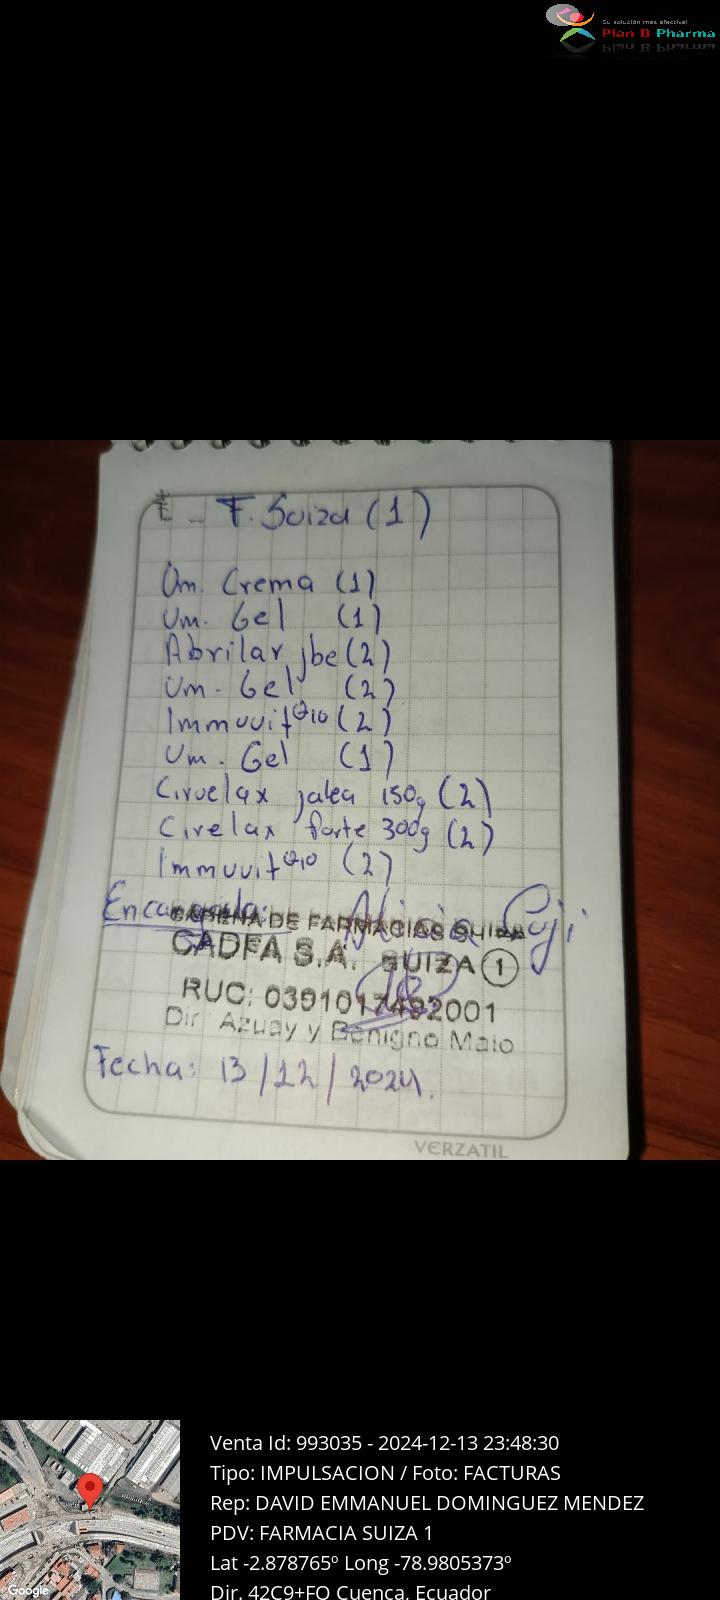 Su solución más efectiva!
Plan B Pharma
F. Suiza (1)
Um. Crema (1)
Um. Gel (1)
Abrilar jbe (2)
Um. Gel (2)
Immuvit Q10 (2)
Um. Gel (1)
Ciruelax jalea 150g (2)
Cirelax forte 300g (2)
Immuvit Q10 (2)
Encargada:
CADENA DE FARMACIAS SUIZA
CADFA S.A. SUIZA 1
RUC: 0391017492001
Dir: Azuay y Benigno Malo
Fecha: 13/12/2024.
VERZATIL
Venta Id: 993035 - 2024-12-13 23:48:30
Tipo: IMPULSACION / Foto: FACTURAS
Rep: DAVID EMMANUEL DOMINGUEZ MENDEZ
PDV: FARMACIA SUIZA 1
Lat -2.878765º Long -78.9805373º
Dir. 42C9+FQ Cuenca, Ecuador
Google